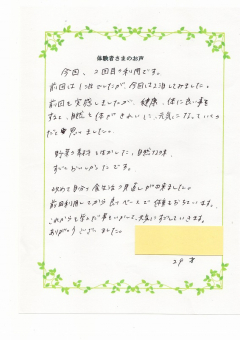 体験者さまのお声
今回、2回目の利用です。
前回は1泊でしたが、今回は2泊してみました。
前回も実感しましたが、健康、体に良い事を
すると、自然と体がきれいに、元気になっていくの
だと思いました。
野菜の素材を活かした、自然な味、
すごくおいしかったです。
改めて自分の食生活の見直しが出来ました。
前回利用してから良いペースで体重もおちています。
これからも学んだ事をいかして、元気にすごしていきます。
ありがとうございました。